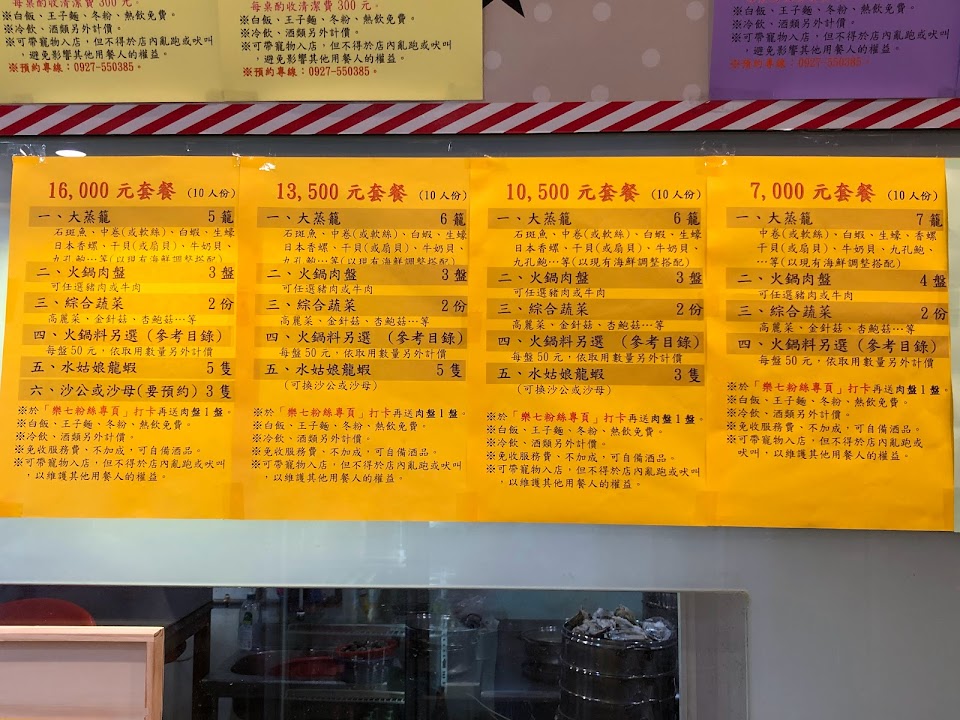 每桌酌收清潔費300元。
※白飯、王子麵、冬粉、熱飲免費。
※冷飲、酒類另外計價。
※可帶寵物入店，但不得於店內亂跑或吠叫
，避免影響其他用餐人的權益。
※預約專線：0927-550385。
※白飯、王子麵、冬粉、熱飲免費。
※冷飲、酒類另外計價。
※可帶寵物入店，但不得於店內亂跑或吠叫
，避免影響其他用餐人的權益。
※預約專線：0927-550385。
※白飯、王子麵、冬粉、熱飲免費。
※冷飲、酒類另外計價。
※可帶寵物入店，但不得於店內亂跑或吠叫
，避免影響其他用餐人的權益。
※預約專線：0927-550385。
16,000 元套餐 (10人份)
一、大蒸籠 5 籠
石斑魚、中卷(或軟絲)、白蝦、生蠔
日本香螺、干貝(或扇貝)、牛奶貝、
九孔鮑…等(以現有海鮮調整搭配)
二、火鍋肉盤 3 盤
可任選豬肉或牛肉
三、綜合蔬菜 2 份
高麗菜、金針菇、杏鮑菇…等
四、火鍋料另選 (參考目錄)
每盤50元，依取用數量另外計價
五、水姑娘龍蝦 5 隻
六、沙公或沙母(要預約) 3 隻
※於「樂七粉絲專頁」打卡再送肉盤1盤。
※白飯、王子麵、冬粉、熱飲免費。
※冷飲、酒類另外計價。
※免收服務費，不加成，可自備酒品。
※可帶寵物入店，但不得於店內亂跑或吠叫
，以維護其他用餐人的權益。
13,500 元套餐 (10人份)
一、大蒸籠 6 籠
石斑魚、中卷(或軟絲)、白蝦、生蠔
日本香螺、干貝(或扇貝)、牛奶貝、
九孔鮑…等(以現有海鮮調整搭配)
二、火鍋肉盤 3 盤
可任選豬肉或牛肉
三、綜合蔬菜 2 份
高麗菜、金針菇、杏鮑菇…等
四、火鍋料另選 (參考目錄)
每盤50元，依取用數量另外計價
五、水姑娘龍蝦 5 隻
(可換沙公或沙母)
※於「樂七粉絲專頁」打卡再送肉盤1盤。
※白飯、王子麵、冬粉、熱飲免費。
※冷飲、酒類另外計價。
※免收服務費，不加成，可自備酒品。
※可帶寵物入店，但不得於店內亂跑或吠叫
，以維護其他用餐人的權益。
10,500 元套餐 (10人份)
一、大蒸籠 6 籠
石斑魚、中卷(或軟絲)、白蝦、生蠔
日本香螺、干貝(或扇貝)、牛奶貝、
九孔鮑…等(以現有海鮮調整搭配)
二、火鍋肉盤 3 盤
可任選豬肉或牛肉
三、綜合蔬菜 2 份
高麗菜、金針菇、杏鮑菇…等
四、火鍋料另選 (參考目錄)
每盤50元，依取用數量另外計價
五、水姑娘龍蝦 3 隻
(可換沙公或沙母)
※於「樂七粉絲專頁」打卡再送肉盤1盤。
※白飯、王子麵、冬粉、熱飲免費。
※冷飲、酒類另外計價。
※免收服務費，不加成，可自備酒品。
※可帶寵物入店，但不得於店內亂跑或吠叫
，以維護其他用餐人的權益。
7,000 元套餐 (10人份)
一、大蒸籠 7 籠
中卷(或軟絲)、白蝦、生蠔、香螺
干貝(或扇貝)、牛奶貝、九孔鮑、
…等(以現有海鮮調整搭配)
二、火鍋肉盤 4 盤
可任選豬肉或牛肉
三、綜合蔬菜 2 份
高麗菜、金針菇、杏鮑菇…等
四、火鍋料另選 (參考目錄)
每盤50元，依取用數量另外計價
※於「樂七粉絲專頁」打卡再送肉盤1盤。
※白飯、王子麵、冬粉、熱飲免費。
※冷飲、酒類另外計價。
※免收服務費，不加成，可自備酒品。
※可帶寵物入店，但不得於店內亂跑或
吠叫，以維護其他用餐人的權益。